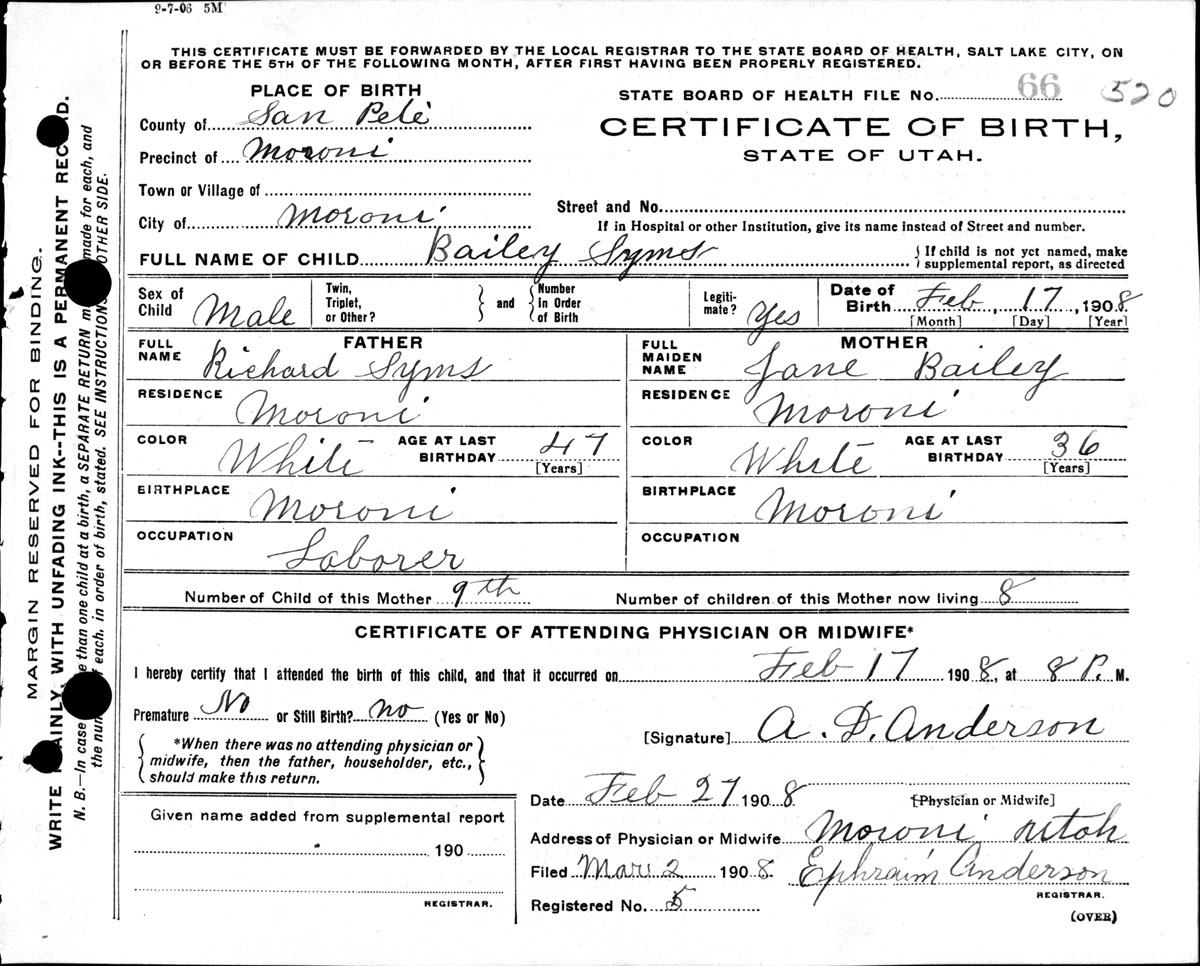 9-7-06 5M
THIS CERTIFICATE MUST BE FORWARDED BY THE LOCAL REGISTRAR TO THE STATE BOARD OF HEALTH, SALT LAKE CITY, ON
OR BEFORE THE 5TH OF THE FOLLOWING MONTH, AFTER FIRST HAVING BEEN PROPERLY REGISTERED.
PLACE OF BIRTH
STATE BOARD OF HEALTH FILE No. 66 520
County of San Pete
CERTIFICATE OF BIRTH,
Precinct of Moroni
STATE OF UTAH.
Town or Village of
City of Moroni
Street and No.
If in Hospital or other Institution, give its name instead of Street and number.
FULL NAME OF CHILD Bailey Syms
{If child is not yet named, make
supplemental report, as directed
Sex of Child Male
Twin, Triplet, or Other?
and
Number in Order of Birth
Legiti-mate? Yes
Date of Birth Feb, 17, 1908
[Month] [Day] [Year]
FATHER
FULL NAME Richard Syms
RESIDENCE Moroni
COLOR White AGE AT LAST BIRTHDAY 47
[Years]
BIRTHPLACE Moroni
OCCUPATION Laborer
MOTHER
FULL MAIDEN NAME Jane Bailey
RESIDENCE Moroni
COLOR White AGE AT LAST BIRTHDAY 36
[Years]
BIRTHPLACE Moroni
OCCUPATION
Number of Child of this Mother 9th Number of children of this Mother now living 8
CERTIFICATE OF ATTENDING PHYSICIAN OR MIDWIFE*
I hereby certify that I attended the birth of this child, and that it occurred on Feb 17 1908, at 8 P. M.
Premature No or Still Birth? no (Yes or No)
{*When there was no attending physician or
midwife, then the father, householder, etc.,
should make this return.}
[Signature] A. D. Anderson
Date Feb 27 1908 [Physician or Midwife]
Given name added from supplemental report
190
REGISTRAR.
Address of Physician or Midwife Moroni Utah
Filed Mar 2 1908 Ephraim Anderson
REGISTRAR.
Registered No. 5
(OVER)
MARGIN RESERVED FOR BINDING.
WRITE PLAINLY, WITH UNFADING INK--THIS IS A PERMANENT RECORD.
N. B.--In case than one child at a birth, a SEPARATE RETURN made for each, and
the each, in order of birth, stated. SEE INSTRUCTIONS OTHER SIDE.